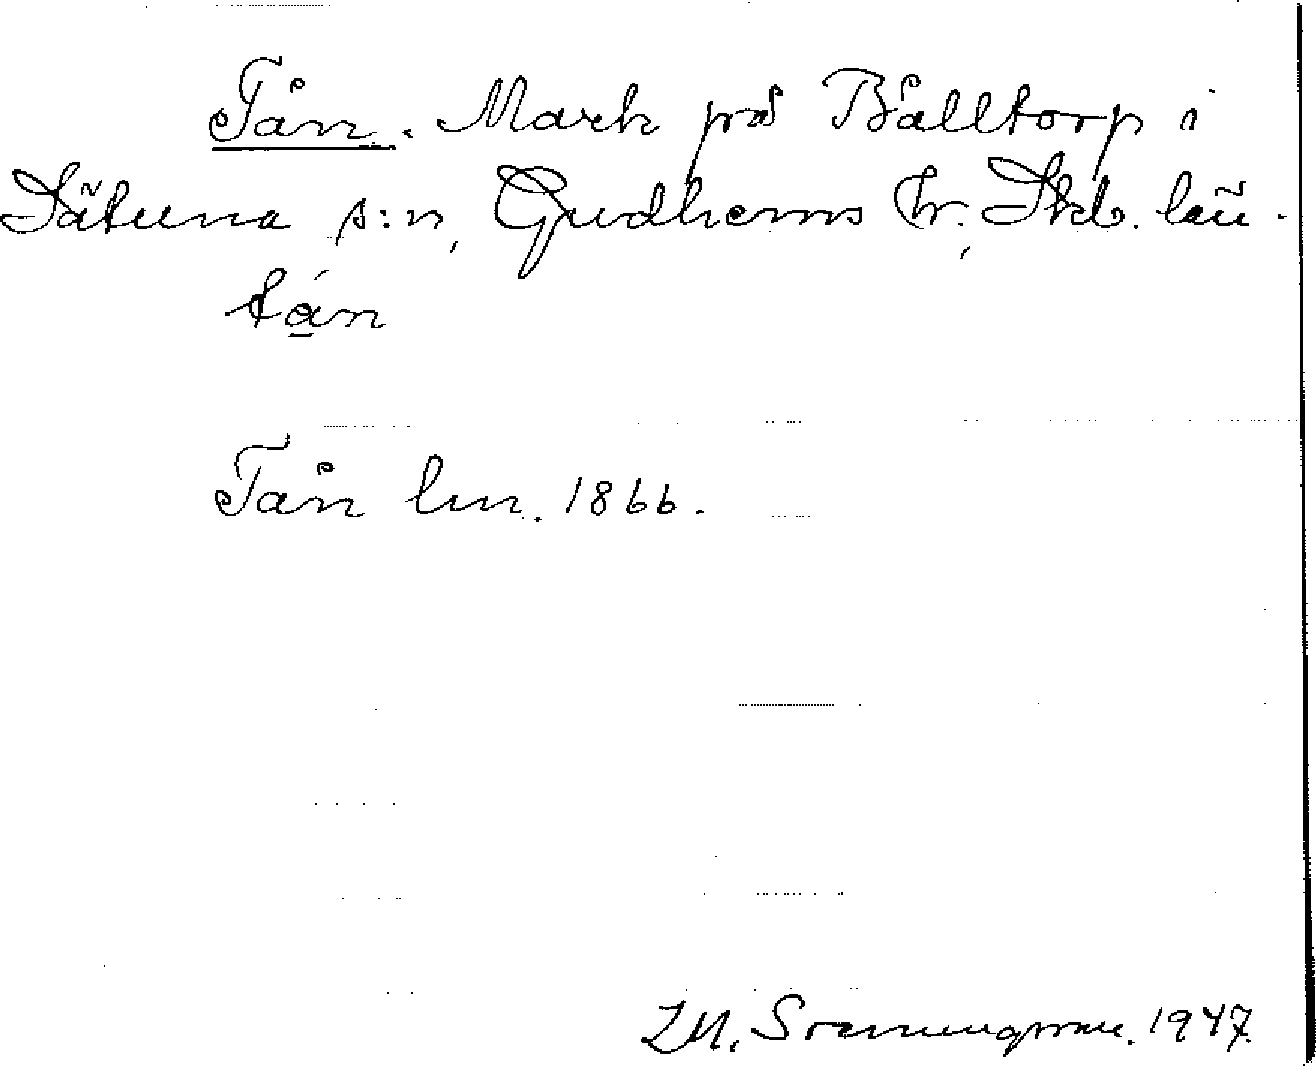 Tån. Mark på Bålltorp i
Sätuna s:n, Gudhems hr, Skb. län.
tá̱n
Tån lm. 1866.
1947.